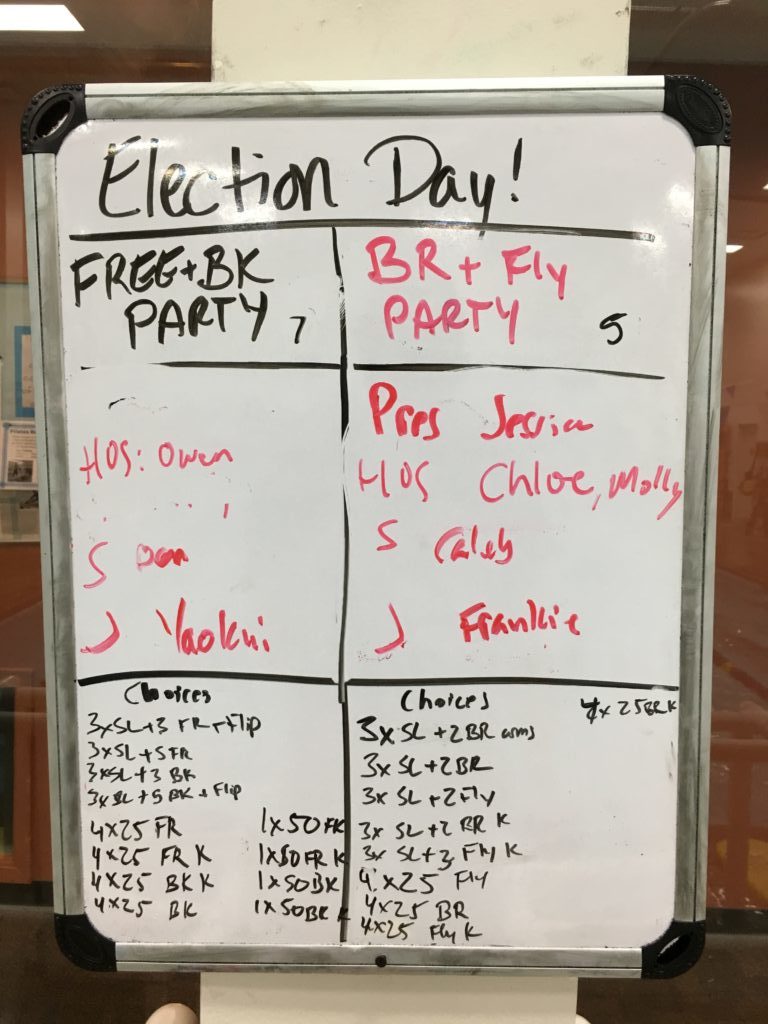 Election Day!
FREE+BK
PARTY 7
HOS: Owen
S
J Yaokui
Choices
3xSL+3 FR+Flip
3xSL+5FR
3xSL+3 BK
3xSL+5 BK+Flip
4x25 FR
4x25 FR K
4x25 BK K
4x25 BK
1x50FR
1x50FR K
1x50BK
1x50BK K
BR+Fly
PARTY 5
Pres Jessica
HOS Chloe, Molly
S Caleb
J Frankie
Choices
3x SL+2BR arms
3x SL+2BR
3x SL+2Fly
3x SL+2 BR K
3x SL+3 Fly K
4x25 Fly
4x25 BR
4x25 Fly K
4x25BR K